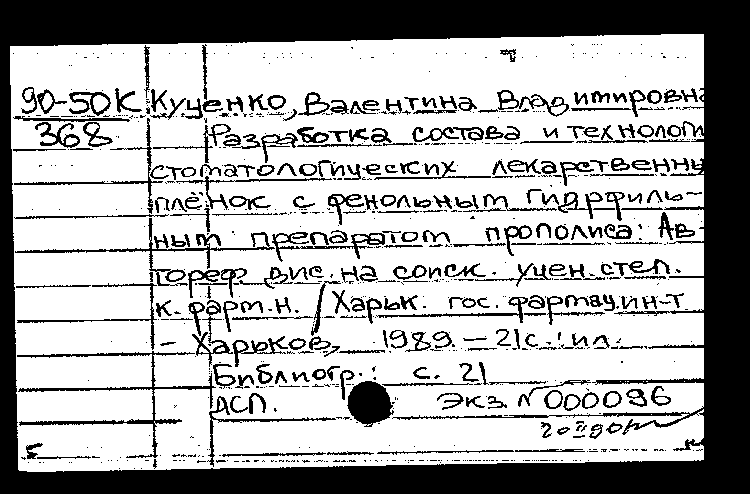 90-50К Кученко, Валентина Владимировна
368 Разработка состава и технологи
стоматологических лекарственны
плёнок с фенольным гидрфиль-
ным препаратом прополиса: Ав-
тореф. дис. на соиск. учен. степ.
к. фарм. н. / Харьк. гос. фармац. ин-т
- Харьков, 1989. - 21 с.: ил.
Библиогр.: с. 21
ДСП. Экз. N 000096